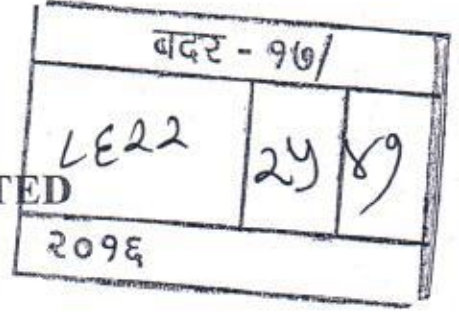 बदर - १७/
८६२२ २५ ४१
TED
२०१६